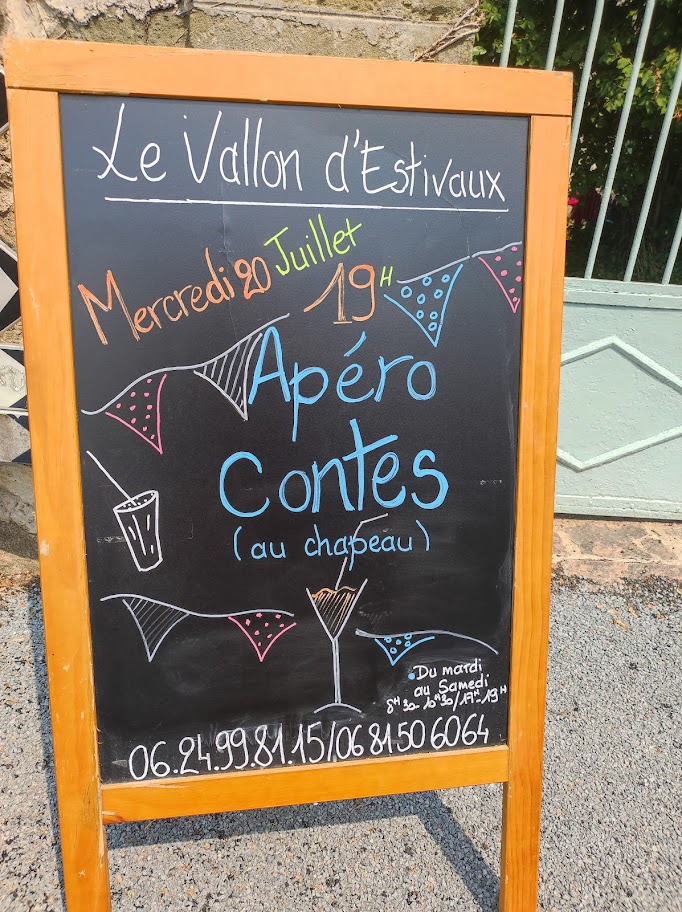 Le Vallon d'Estivaux
Mercredi 20 Juillet
19H
Apéro
Contes
(au chapeau)
Du mardi
au Samedi
8H30-10H30/17H-19H
06.24.99.81.15/06 81 50 60 64